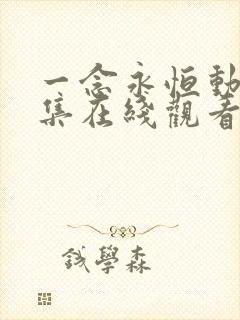 一念永恒動
集在綫觀看
钱學森